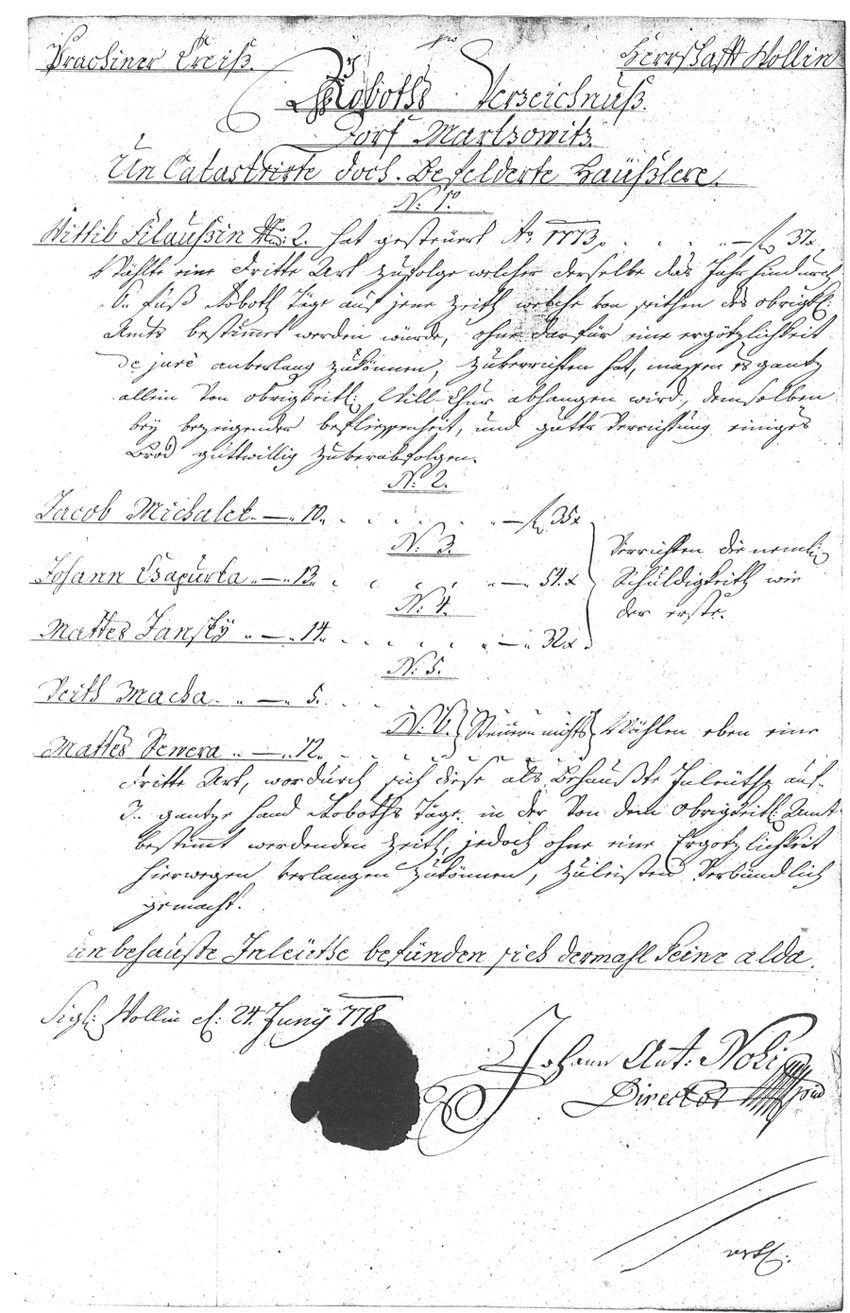 Prachiner Creiß. Herrschafft Wollin
Roboths Verzeichnuß.
Dorf Martzowitz.
Un Catastrirte doch. Befelderte Häußlere.
N: 1º
Wittib Filaußin No: 2. hat gesteuert Ao 1773. . . . . — f 37x
Wählte eine dritte Art zufolge welcher derselbe das Jahr hindurch
6. fuß Roboth Täge auf jene Zeith welche von seithen des obrigktl:
Amts bestimet werden würde, ohne darfür eine ergötzlichkeit
de jure anverlang zukönnen, zuverrichten hat, massen es gantz
allein von obrigkeitl: Will Chur abhangen wird, demselben
bey bezeigender beflissenheit, und gutter Verrichtung einiges
Brod guttwillig zuverabfolgen.
N: 2.
Jacob Michalek — 10. . . . . . — f 35x
N: 3.
Johann Czapurka — 13. . . . . — 54.x
Verrichten die nemli:
Schuldigkeith wie
der erste.
N: 4.
Mattes Jansky — 14. . . . . . — 32x
N: 5.
Veith Macha . — 5. . . .
N: 6. Steuern nichts Wählen eben eine
Mattes Sewera . — 12.
dritte Art, wordurch sich diese als Behaußte Inleuthe auf.
3. gantze hand Roboths Täge in der von dem Obrigkeitl: Amt
bestimmt werdenden Zeith, jedoch ohne eine Ergötzlichkeit
hierwegen verlangen zukönnen, zuleisten Verbündlich
gemacht.
unbehauste Inleuthe befünden sich dermahl keine alda.
Sigl: Wollin d: 24. Juny 778
Johann Ant: Noki
Director